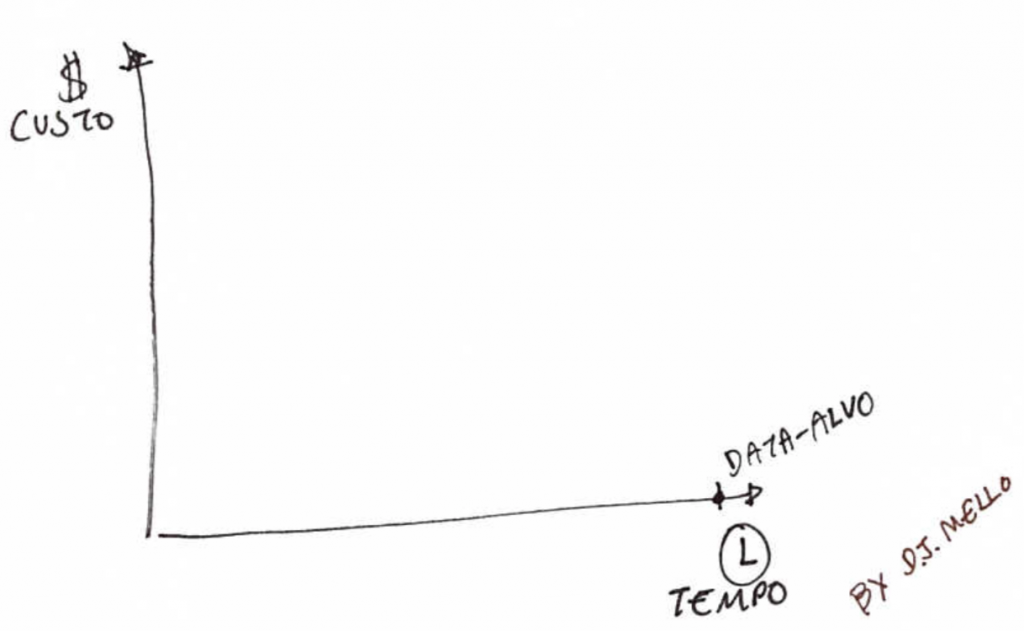 $
CUSTO
DATA-ALVO
TEMPO
BY D.J. MELLO